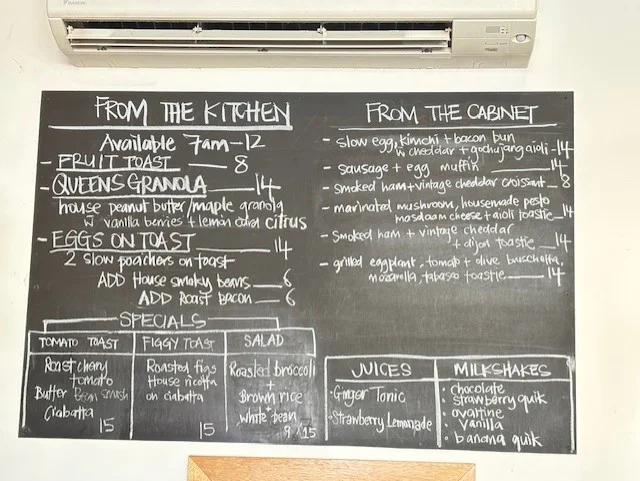 DAIKIN
FROM THE KITCHEN
Available 7am-12
- FRUIT TOAST — 8
- QUEENS GRANOLA — 14
house peanut butter/maple granola
w vanilla berries + lemon curd citrus
- EGGS ON TOAST — 14
2 slow poachers on toast
ADD House smoky beans — 6
ADD Roast Bacon — 6
SPECIALS
TOMATO TOAST
Roast chery
tomato
Butter Bean smash
Ciabatta
15
FIGGY TOAST
Roasted figs
House ricotta
on ciabatta
15
SALAD
Roasted broccoli
+
Brown rice
+
white bean
9/15
FROM THE CABINET
- slow egg, kimchi + bacon bun
w cheddar + gochujang aioli - 14
- sausage + egg muffin — 14
- smoked ham + vintage cheddar croissant - 8
- marinated mushroom, housemade pesto
maasdaam cheese + aioli toastie - 14
- smoked ham + vintage cheddar
+ dijon toastie — 14
- grilled eggplant, tomato + olive buschetta,
mozarella, tabaso toastie — 14
JUICES
· Ginger Tonic
· Strawberry Lemonade
MILKSHAKES
· chocolate
· strawberry quik
· ovaltine
· vanilla
· banana quik